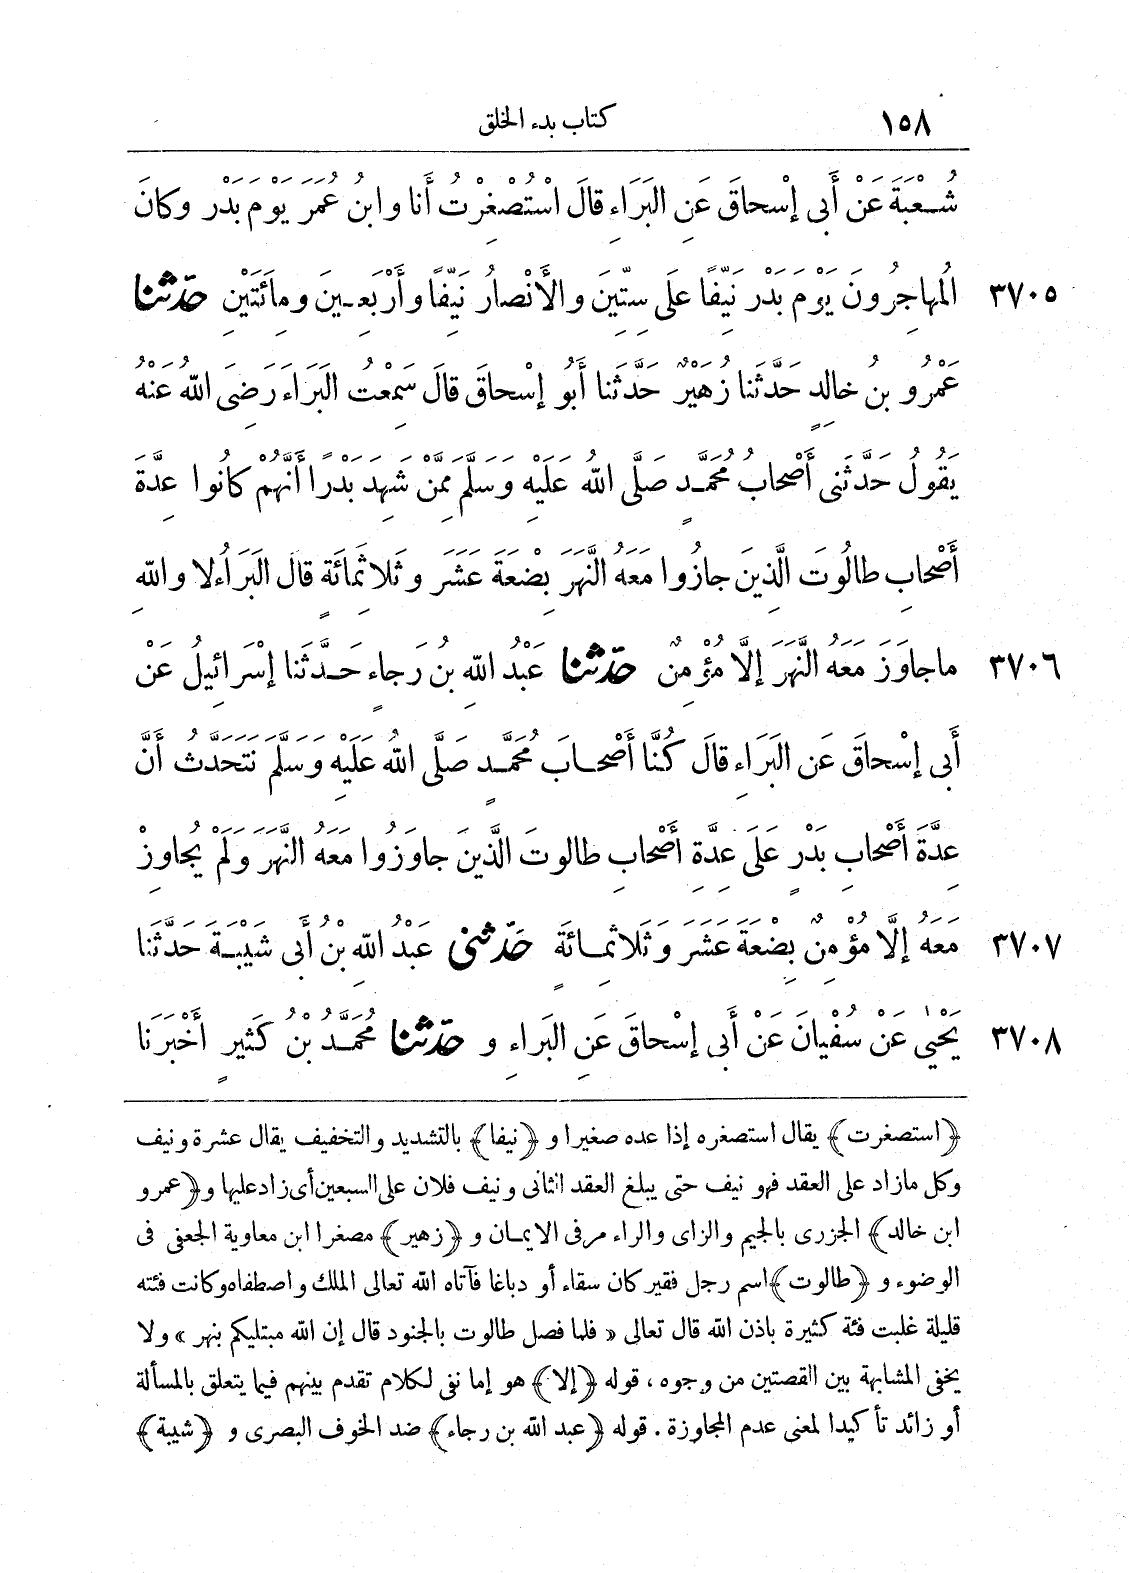 ١٥٨ كتاب بدء الخلق
شُعْبَةَ عَنْ أَبِى إِسْحاقَ عَنِ البَرَاءِ قالَ اسْتُصْغِرْتُ أَنا وابنُ عُمَرَ يَوْمَ بَدْرٍ وكانَ
٣٧٠٥ المُهاجِرُونَ يَوْمَ بَدْرٍ نَيِّفًا عَلَى سِتِّينَ والأَنْصارُ نَيِّفًا وأَرْبَعِينَ ومِائَتَيْنِ حَدَّثنا
عَمْرُو بنُ خالِدٍ حَدَّثَنا زُهَيْرٌ حَدَّثَنا أَبُو إِسْحاقَ قالَ سَمِعْتُ البَرَاءَ رَضِىَ اللهُ عَنْهُ
يَقُولُ حَدَّثَنِى أَصْحابُ مُحَمَّدٍ صَلَّى اللهُ عَلَيْهِ وَسَلَّمَ مِمَّنْ شَهِدَ بَدْرًا أَنَّهُمْ كانُوا عِدَّةَ
أَصْحابِ طالُوتَ الَّذِينَ جازُوا مَعَهُ النَّهَرَ بِضْعَةَ عَشَرَ وثَلاثَمِائَةٍ قالَ البَرَاءُ لا واللهِ
٣٧٠٦ ماجاوَزَ مَعَهُ النَّهَرَ إِلَّا مُؤْمِنٌ حَدَّثنا عَبْدُ اللهِ بنُ رَجاءٍ حَدَّثَنا إِسْرَائِيلُ عَنْ
أَبِى إِسْحاقَ عَنِ البَرَاءِ قالَ كُنَّا أَصْحابَ مُحَمَّدٍ صَلَّى اللهُ عَلَيْهِ وَسَلَّمَ نَتَحَدَّثُ أَنَّ
عِدَّةَ أَصْحابِ بَدْرٍ عَلَى عِدَّةِ أَصْحابِ طالوتَ الَّذِينَ جاوَزُوا مَعَهُ النَّهَرَ ولَمْ يُجاوِزْ
٣٧٠٧ مَعَهُ إِلَّا مُؤْمِنٌ بِضْعَةَ عَشَرَ وَثَلاثَمِائَةٍ حَدَّثنى عَبْدُ اللهِ بنُ أَبى شَيْبَةَ حَدَّثَنا
٣٧٠٨ يَحْيَى عَنْ سُفْيانَ عَنْ أَبِى إِسْحاقَ عَنِ البَرَاءِ و حَدَّثنا مُحَمَّدُ بنُ كَثِيرٍ أَخْبَرَنا
﴿استصغرت﴾ يقال استصغره إذا عده صغيرا و ﴿نيفا﴾ بالتشديد والتخفيف يقال عشرة ونيف
وكل مازاد على العقد فهو نيف حتى يبلغ العقد الثانى ونيف فلان على السبعين أى زاد عليها و﴿عمرو
ابن خالد﴾ الجزرى بالجيم والزاى والراء مر فى الايمان و ﴿زهير﴾ مصغرا ابن معاوية الجعفى فى
الوضوء و ﴿طالوت﴾ اسم رجل فقير كان سقاء أو دباغا فآتاه الله تعالى الملك واصطفاه وكانت فئته
قليلة غلبت فئة كثيرة باذن الله قال تعالى « فلما فصل طالوت بالجنود قال إن الله مبتليكم بنهر » ولا
يخفى المشابهة بين القصتين من وجوه ، قوله ﴿إلا﴾ هو إما نفى لكلام تقدم بينهم فيما يتعلق بالمسألة
أو زائد تأكيدا لمعنى عدم المجاوزة . قوله ﴿عبد الله بن رجاء﴾ ضد الخوف البصرى و ﴿شيبة﴾